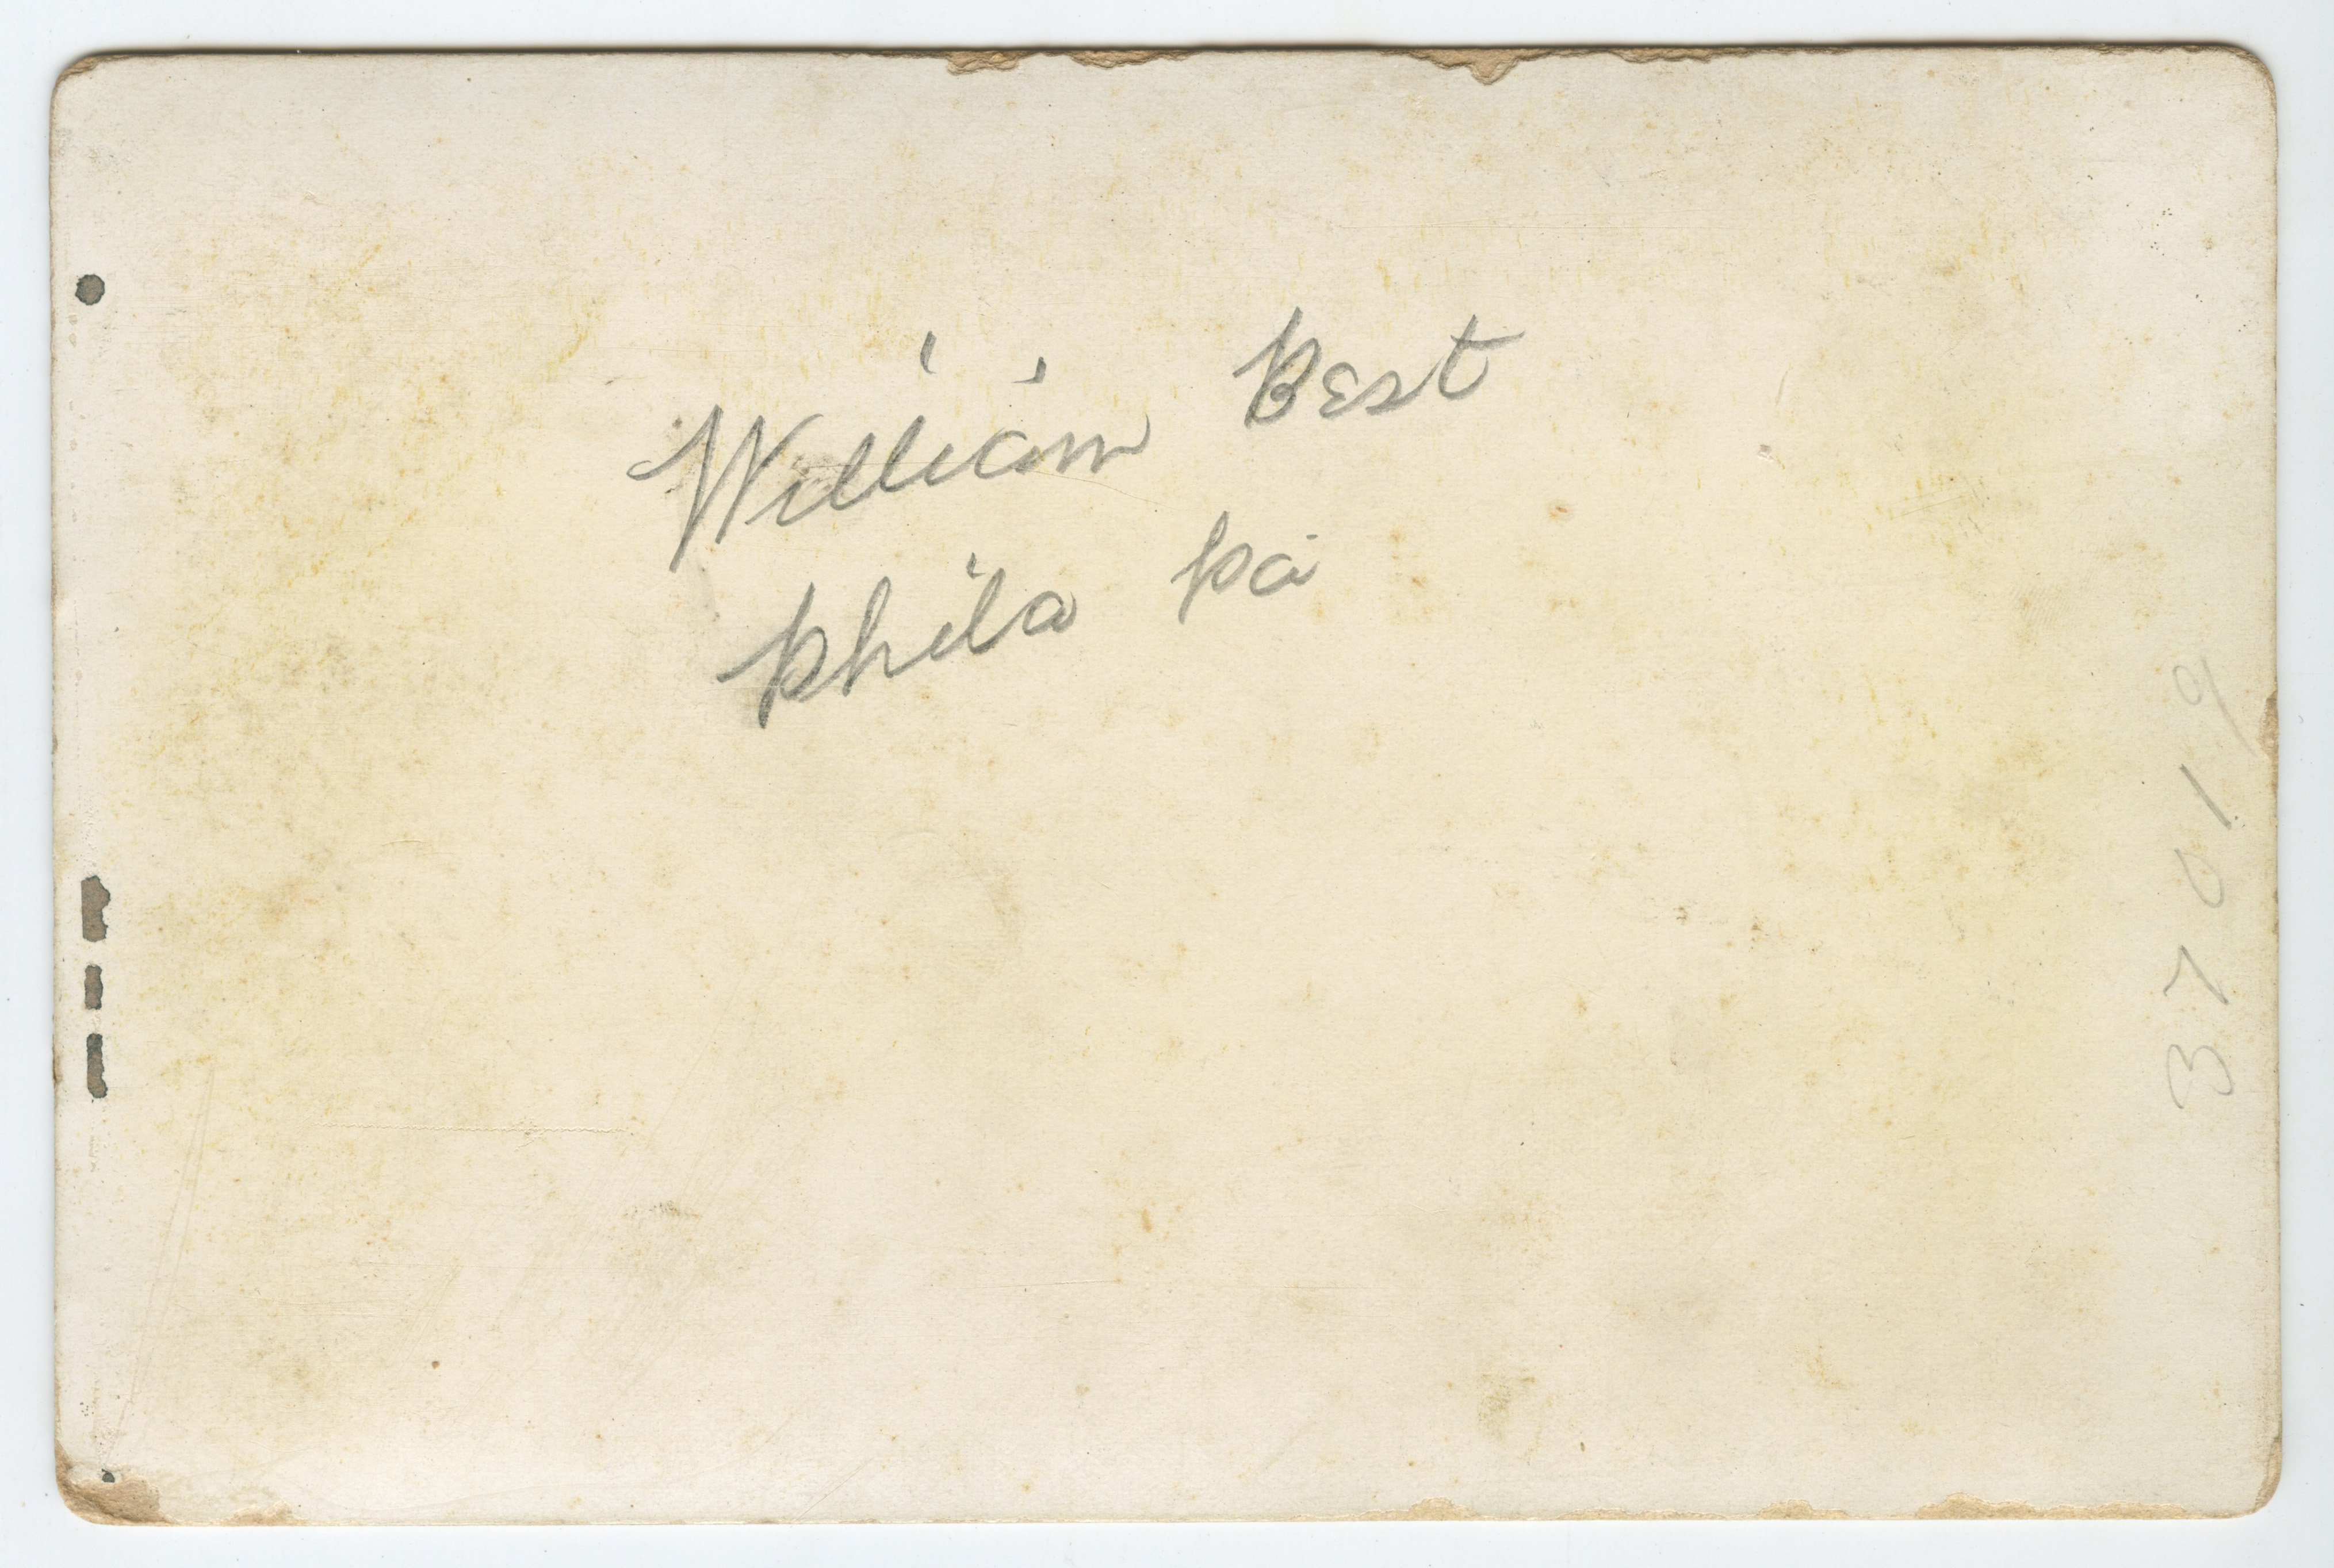 William Best
Phila Pa
37019